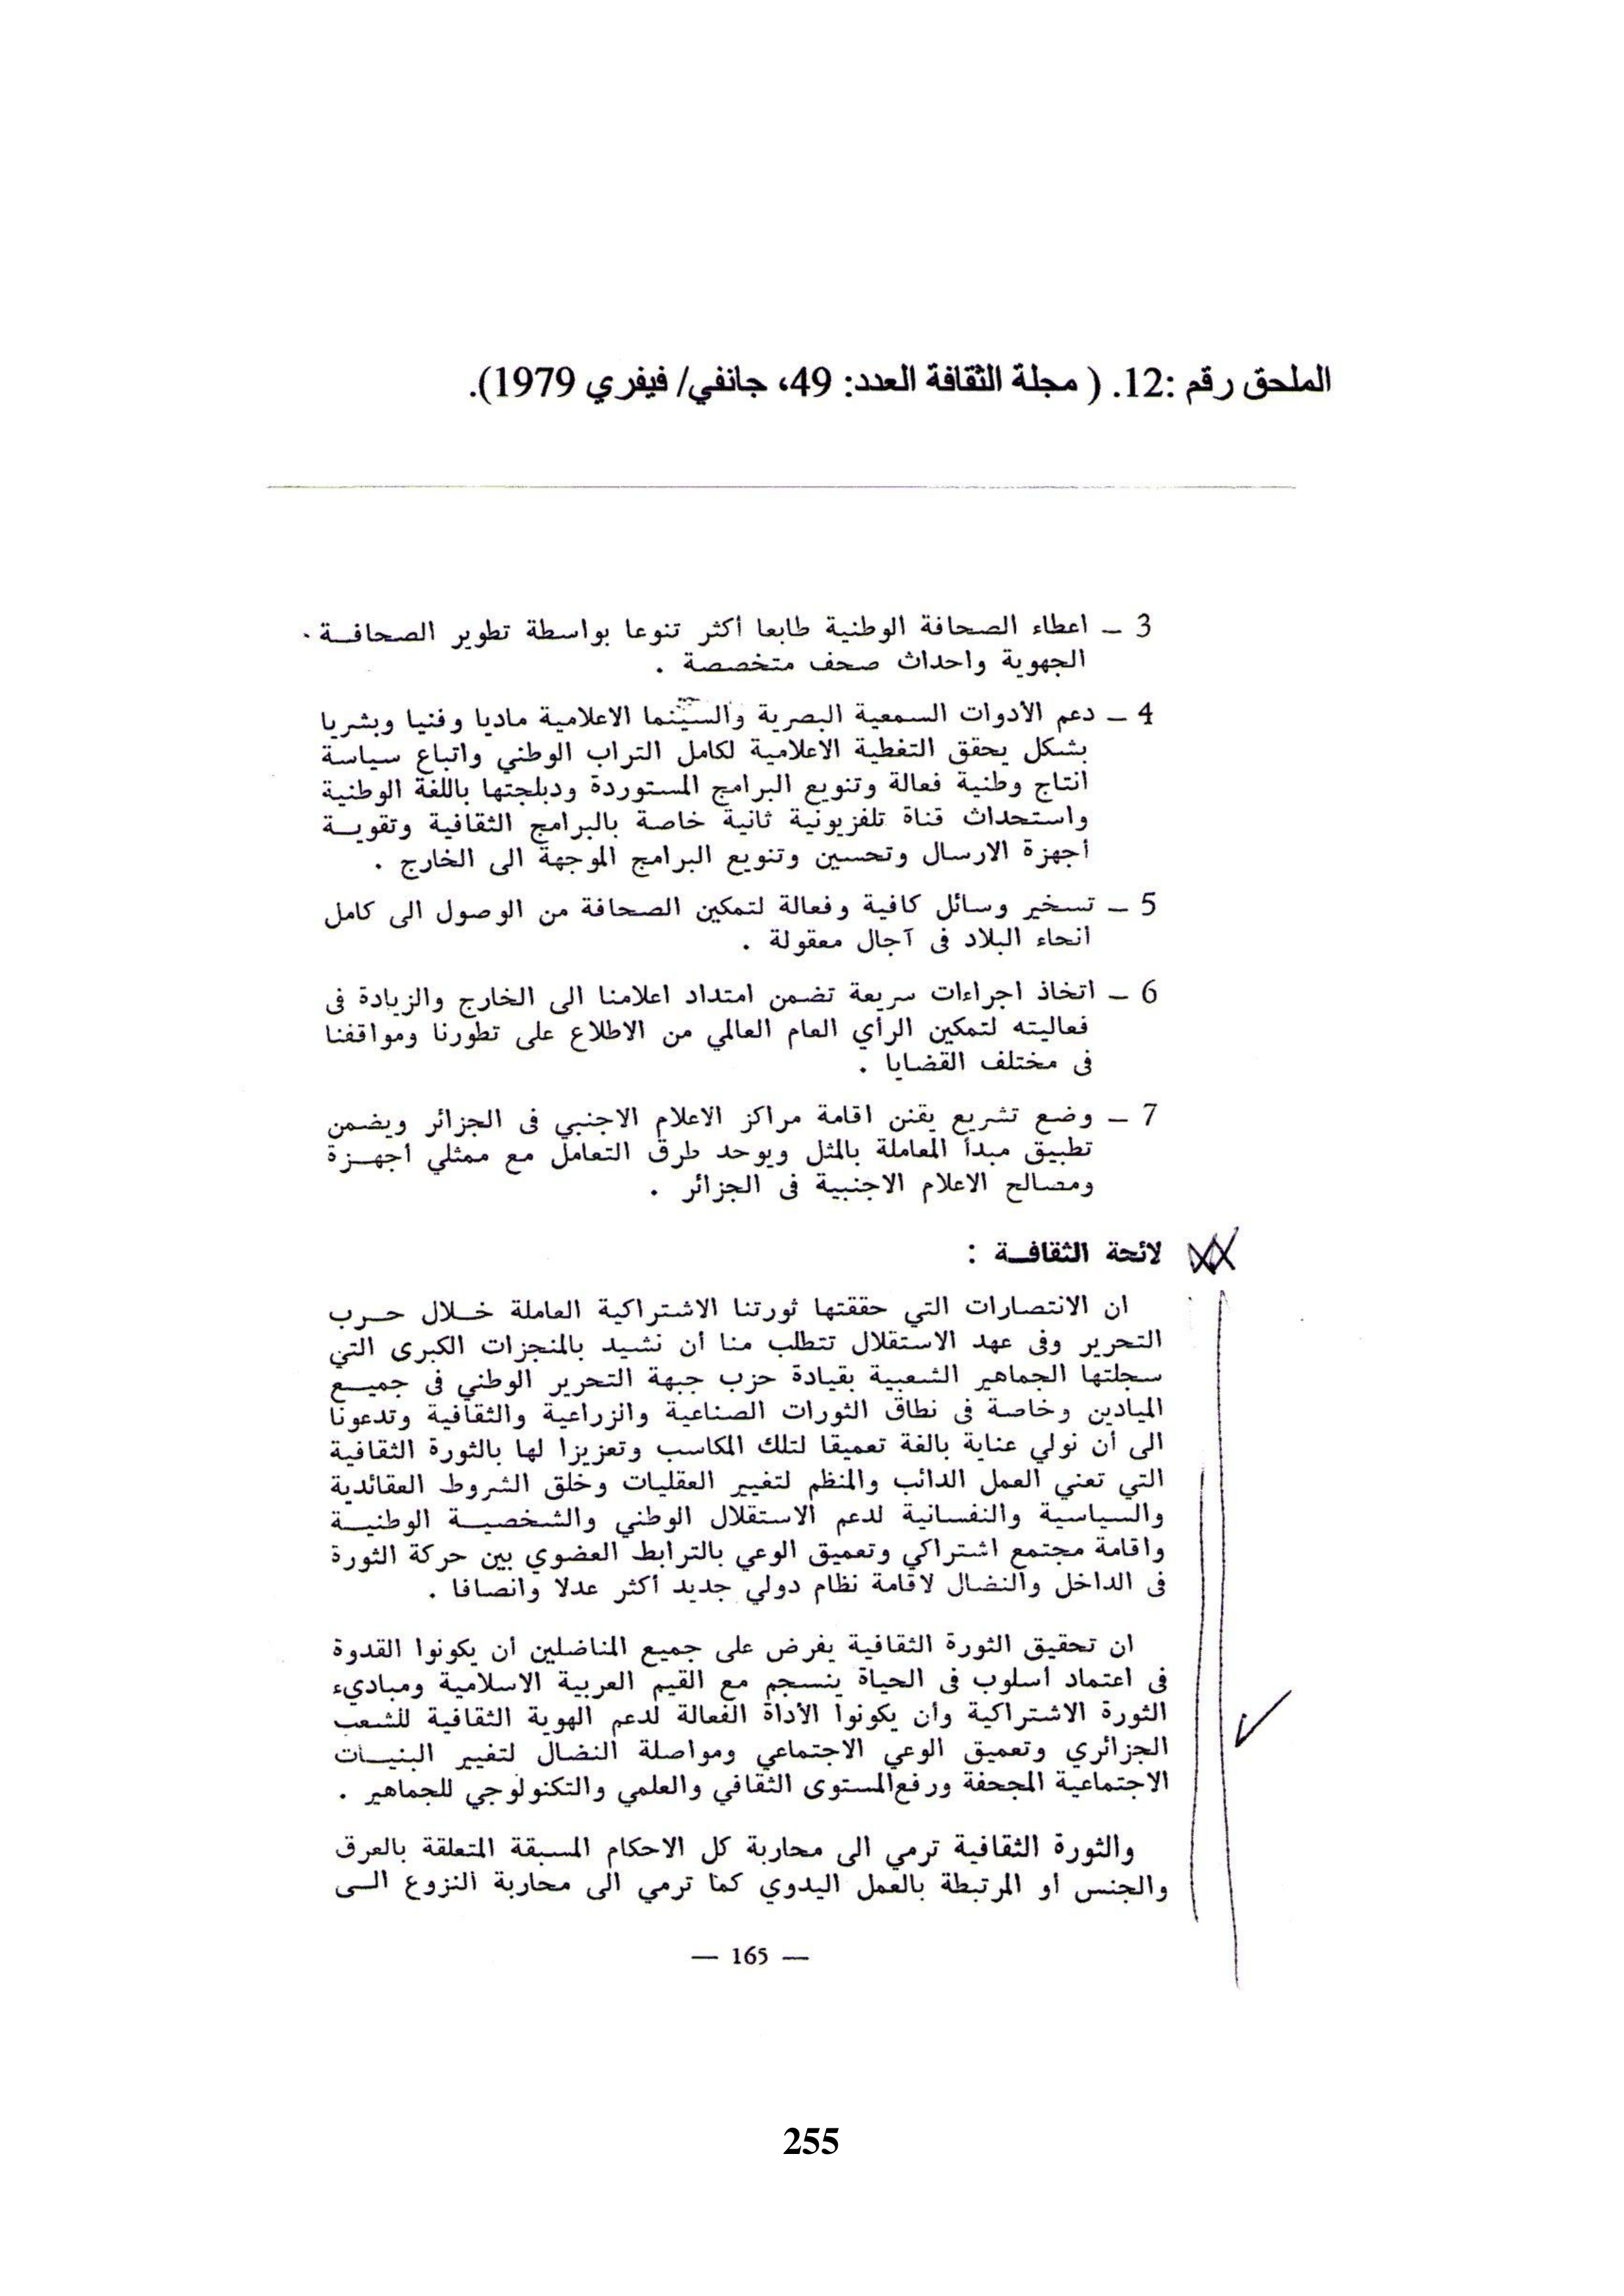 الملحق رقم :12. ( مجلة الثقافة العدد: 49، جانفي/ فيفري 1979).
3 ــ اعطاء الصحافة الوطنية طابعا أكثر تنوعا بواسطة تطوير الصحافــة
الجهوية واحداث صحف متخصصة .
4 ــ دعم الأدوات السمعية البصرية والسينما الاعلامية ماديا وفنيا وبشريا
بشكل يحقق التغطية الاعلامية لكامل التراب الوطني واتباع سياسة
انتاج وطنية فعالة وتنويع البرامج المستوردة ودبلجتها باللغة الوطنية
واستحداث قناة تلفزيونية ثانية خاصة بالبرامج الثقافية وتقويــة
أجهزة الارسال وتحسين وتنويع البرامج الموجهة الى الخارج .
5 ــ تسخير وسائل كافية وفعالة لتمكين الصحافة من الوصول الى كامل
انحاء البلاد فى آجال معقولة .
6 ــ اتخاذ اجراءات سريعة تضمن امتداد اعلامنا الى الخارج والزيادة فى
فعاليته لتمكين الرأي العام العالمي من الاطلاع على تطورنا ومواقفنا
فى مختلف القضايا .
7 ــ وضع تشريع يقنن اقامة مراكز الاعلام الاجنبي فى الجزائر ويضمن
تطبيق مبدأ المعاملة بالمثل ويوحد طرق التعامل مع ممثلي أجهــزة
ومصالح الاعلام الاجنبية فى الجزائر .
لائحة الثقافــة :
ان الانتصارات التي حققتها ثورتنا الاشتراكية العاملة خــلال حــرب
التحرير وفى عهد الاستقلال تتطلب منا أن نشيد بالمنجزات الكبرى التي
سجلتها الجماهير الشعبية بقيادة حزب جبهة التحرير الوطني فى جميــع
الميادين وخاصة فى نطاق الثورات الصناعية والزراعية والثقافية وتدعونا
الى أن نولي عناية بالغة تعميقا لتلك المكاسب وتعزيزا لها بالثورة الثقافية
التي تعني العمل الدائب والمنظم لتغيير العقليات وخلق الشروط العقائدية
والسياسية والنفسانية لدعم الاستقلال الوطني والشخصيــة الوطنيــة
واقامة مجتمع اشتراكي وتعميق الوعي بالترابط العضوي بين حركة الثورة
فى الداخل والنضال لاقامة نظام دولي جديد أكثر عدلا وانصافا .
ان تحقيق الثورة الثقافية يفرض على جميع المناضلين أن يكونوا القدوة
فى اعتماد أسلوب فى الحياة ينسجم مع القيم العربية الاسلامية ومباديء
الثورة الاشتراكية وأن يكونوا الأداة الفعالة لدعم الهوية الثقافية للشعب
الجزائري وتعميق الوعي الاجتماعي ومواصلة النضال لتغيير البنيــات
الاجتماعية المجحفة ورفع المستوى الثقافي والعلمي والتكنولوجي للجماهير .
والثورة الثقافية ترمي الى محاربة كل الاحكام المسبقة المتعلقة بالعرق
والجنس أو المرتبطة بالعمل اليدوي كما ترمي الى محاربة النزوع الــى
— 165 —
255